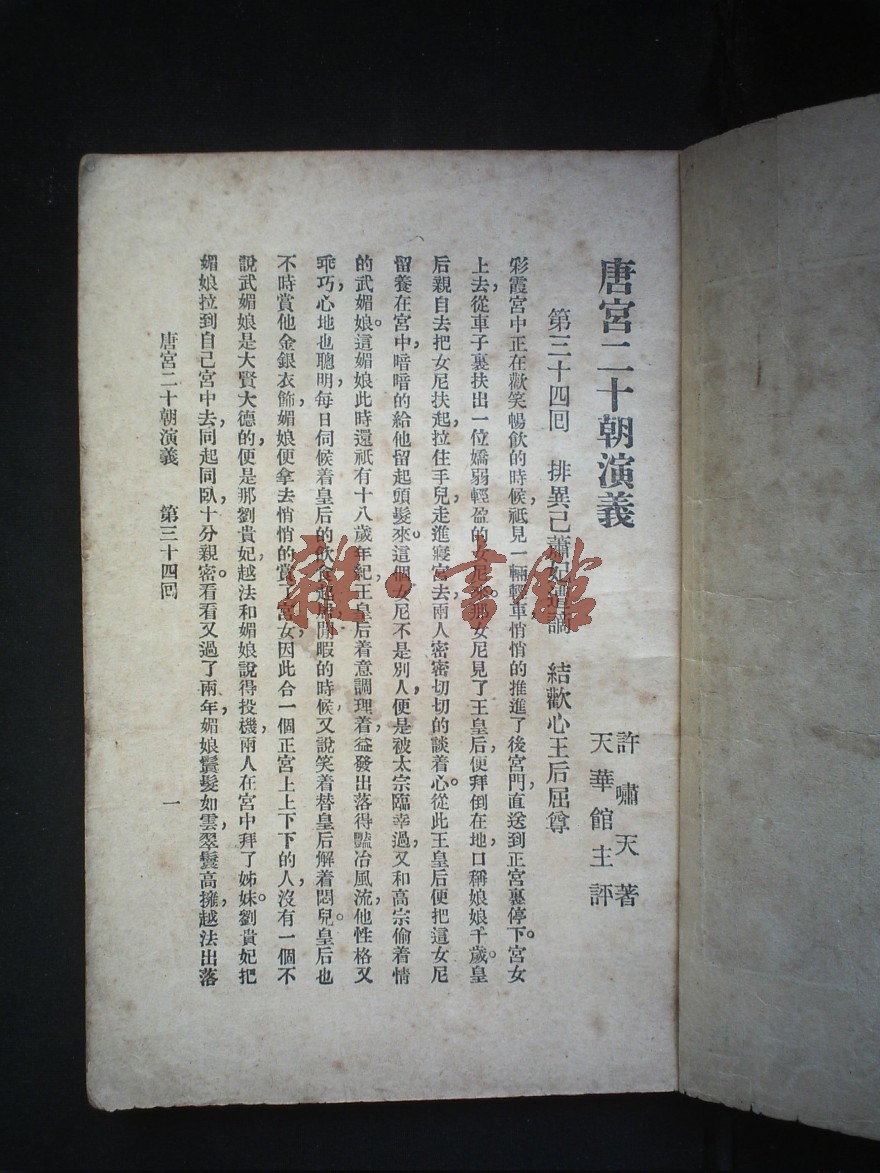 唐宮二十朝演義
許嘯天著
天華館主評
第三十四回　排異己蕭妃遭謫　結歡心王后屈尊
彩霞宮中正在歡笑暢飲的時候，祇見一輛輕車悄悄的推進了後宮門，直送到正宮裏停下。宮女
上去，從車子裏扶出一位嬌弱輕盈的女尼來。那女尼見了王皇后，便拜倒在地，口稱娘娘千歲。皇
后親自去把女尼扶起，拉住手兒，走進寢宮去，兩人密密切切的談着心。從此王皇后便把這女尼
留養在宮中，暗暗的給他留起頭髮來。這個女尼不是別人，便是被太宗臨幸過，又和高宗偷着情
的武媚娘。這媚娘此時還祇有十八歲年紀，王皇后着意調理着，益發出落得豔冶風流，他性格又
乖巧，心地也聰明，每日伺候着皇后的飲食起居，閒暇的時候，又說笑着替皇后解着悶兒。皇后也
不時賞他金銀衣飾，媚娘便拿去悄悄的賞了宮女，因此合一個正宮上上下下的人，沒有一個不
說武媚娘是大賢大德的，便是那劉貴妃越法和媚娘說得投機，兩人在宮中拜了姊妹。劉貴妃把
媚娘拉到自己宮中去，同起同臥，十分親密。看看又過了兩年，媚娘鬢髮如雲，翠鬟高擁，越法出落
唐宮二十朝演義　第三十四回　一
雜·書館